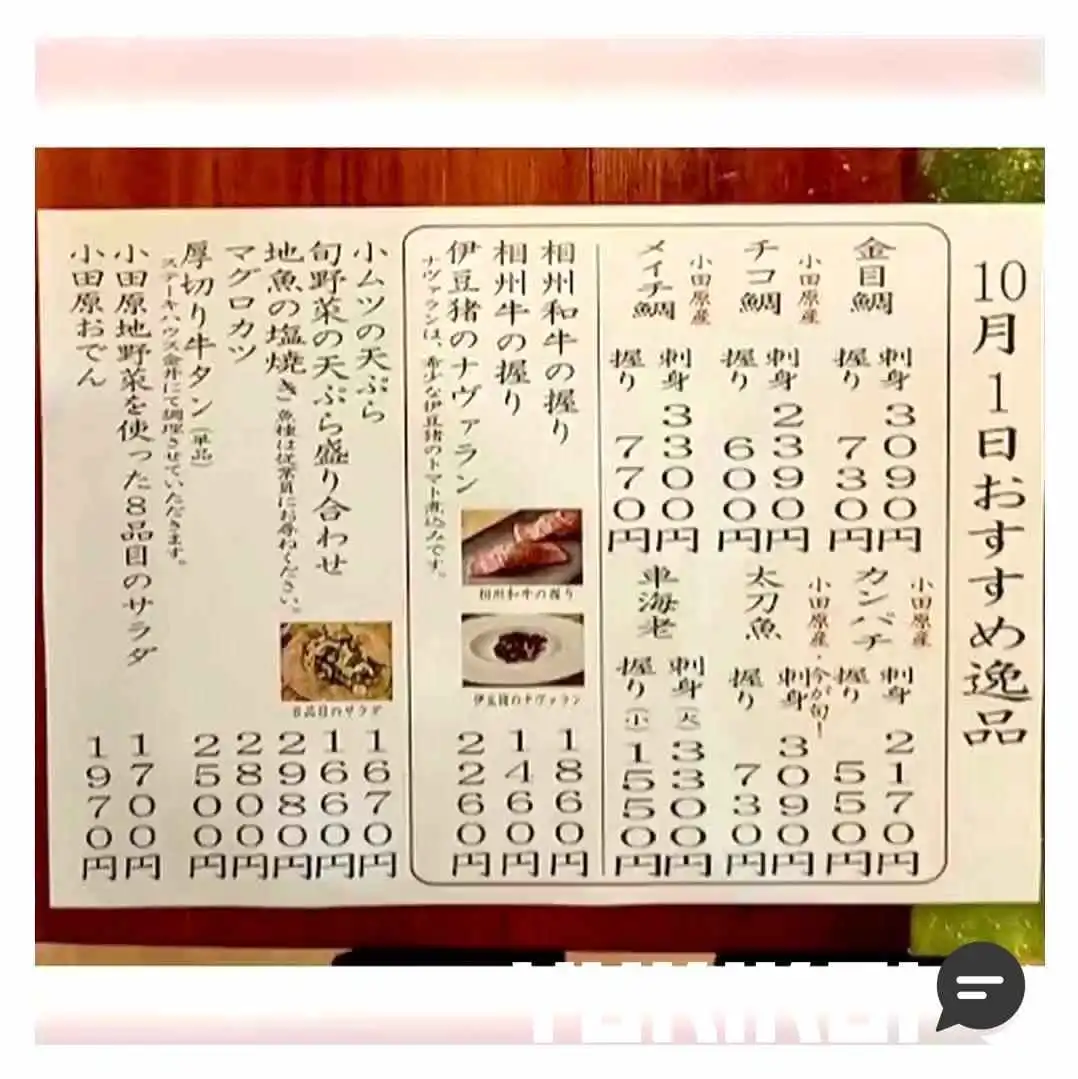 10月1日おすすめ逸品
金目鯛
刺身 3090円
握り 730円
小田原産
カンパチ
刺身 2170円
握り 550円
小田原産
チコ鯛
刺身 2390円
握り 600円
小田原産・今が旬！
太刀魚
刺身 3090円
握り 730円
小田原産
メイチ鯛
刺身 3300円
握り 770円
車海老
刺身(大) 3300円
握り(小) 1550円
相州和牛の握り 1860円
相州牛の握り 1460円
伊豆猪のナヴァラン 2260円
ナヴァランは、希少な伊豆猪のトマト煮込みです。
相州和牛の握り
伊豆猪のナヴァラン
小ムツの天ぷら 1670円
旬野菜の天ぷら盛り合わせ 1660円
地魚の塩焼き 魚種は従業員にお尋ねください。 2980円
マグロカツ 2800円
厚切り牛タン(単品) 2500円
ステーキハウス金井にて調理させていただきます。
小田原地野菜を使った8品目のサラダ 1700円
小田原おでん 1970円
8品目のサラダ